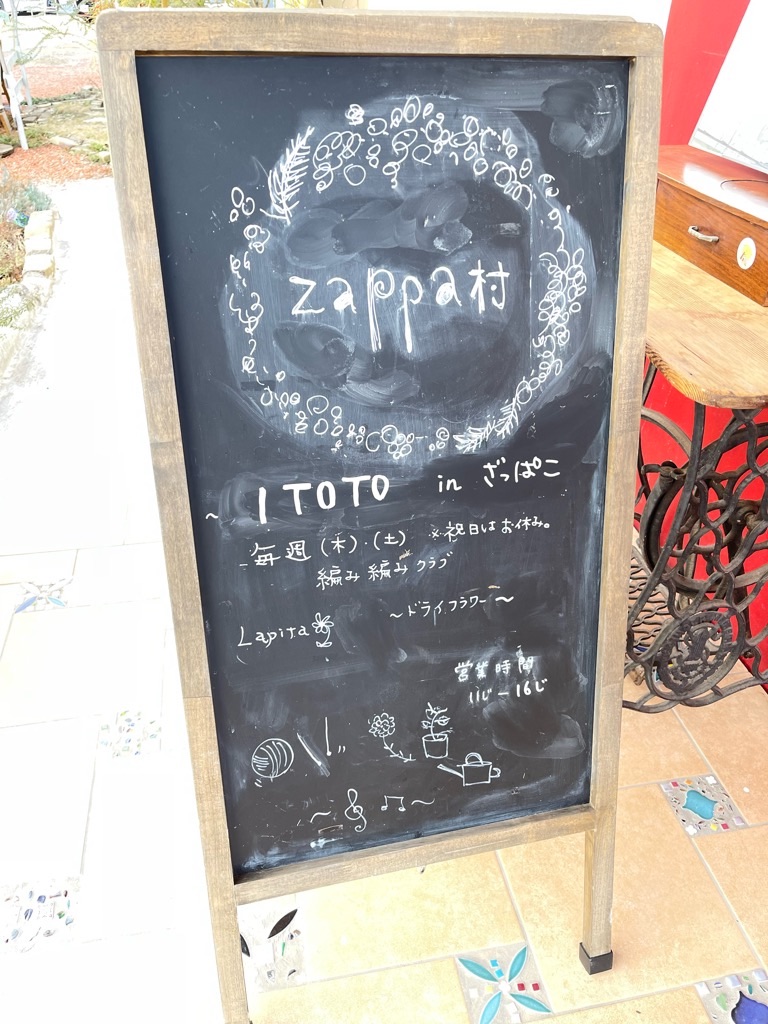 zappa村
~ ITOTO in ざっぱこ
毎週(木)・(土) ※祝日はお休み。
編み編みクラブ
Lapita
~ドライフラワー~
営業時間
11じ-16じ